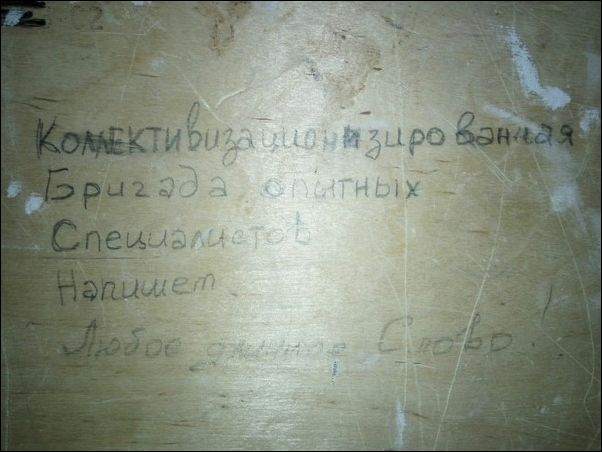 Коллективизационизированная
Бригада опытных
Специалистов
Напишет
Любое длинное Слово!